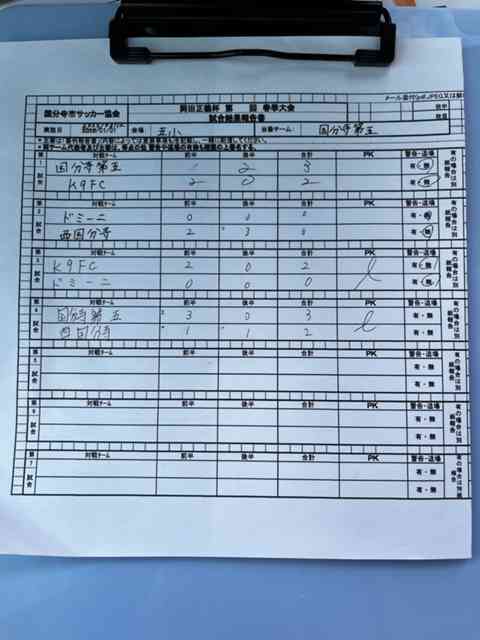 メール添付
岡田正義杯 第 回 春季大会
国分寺市サッカー協会 試合結果報告書
会場 五小 当番チーム: 国分寺第五
第1試合 対戦チーム 前半 後半 合計 PK 警告・退場
国分寺第五 1 2 3 有・無
K9FC 2 0 2 有・無
有の場合は別紙報告
第2試合 対戦チーム 前半 後半 合計 PK 警告・退場
ドミーニ 0 0 0 有・無
西国分寺 2 3 有・無
有の場合は別紙報告
第3試合 対戦チーム 前半 後半 合計 PK 警告・退場
K9FC 2 0 2 有・無
ドミーニ 0 0 0 有・無
有の場合は別紙報告
第4試合 対戦チーム 前半 後半 合計 PK 警告・退場
国分寺第五 3 0 3 有・無
西国分寺 1 1 2 有・無
有の場合は別紙報告
第5試合 対戦チーム 前半 後半 合計 PK 警告・退場
有・無
有・無
有の場合は別紙報告
第6試合 対戦チーム 前半 後半 合計 PK 警告・退場
有・無
有・無
有の場合は別紙報告
第7試合 対戦チーム 前半 後半 合計 PK 警告・退場
有・無
有・無
有の場合は別紙報告